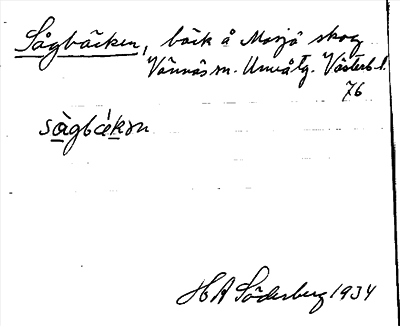 Sågbäcken, bäck å Mosjö skog
Vännäs sn. Umeå tg. Västerb. l.
76
sågbäkɘn
H A Söderberg 1934